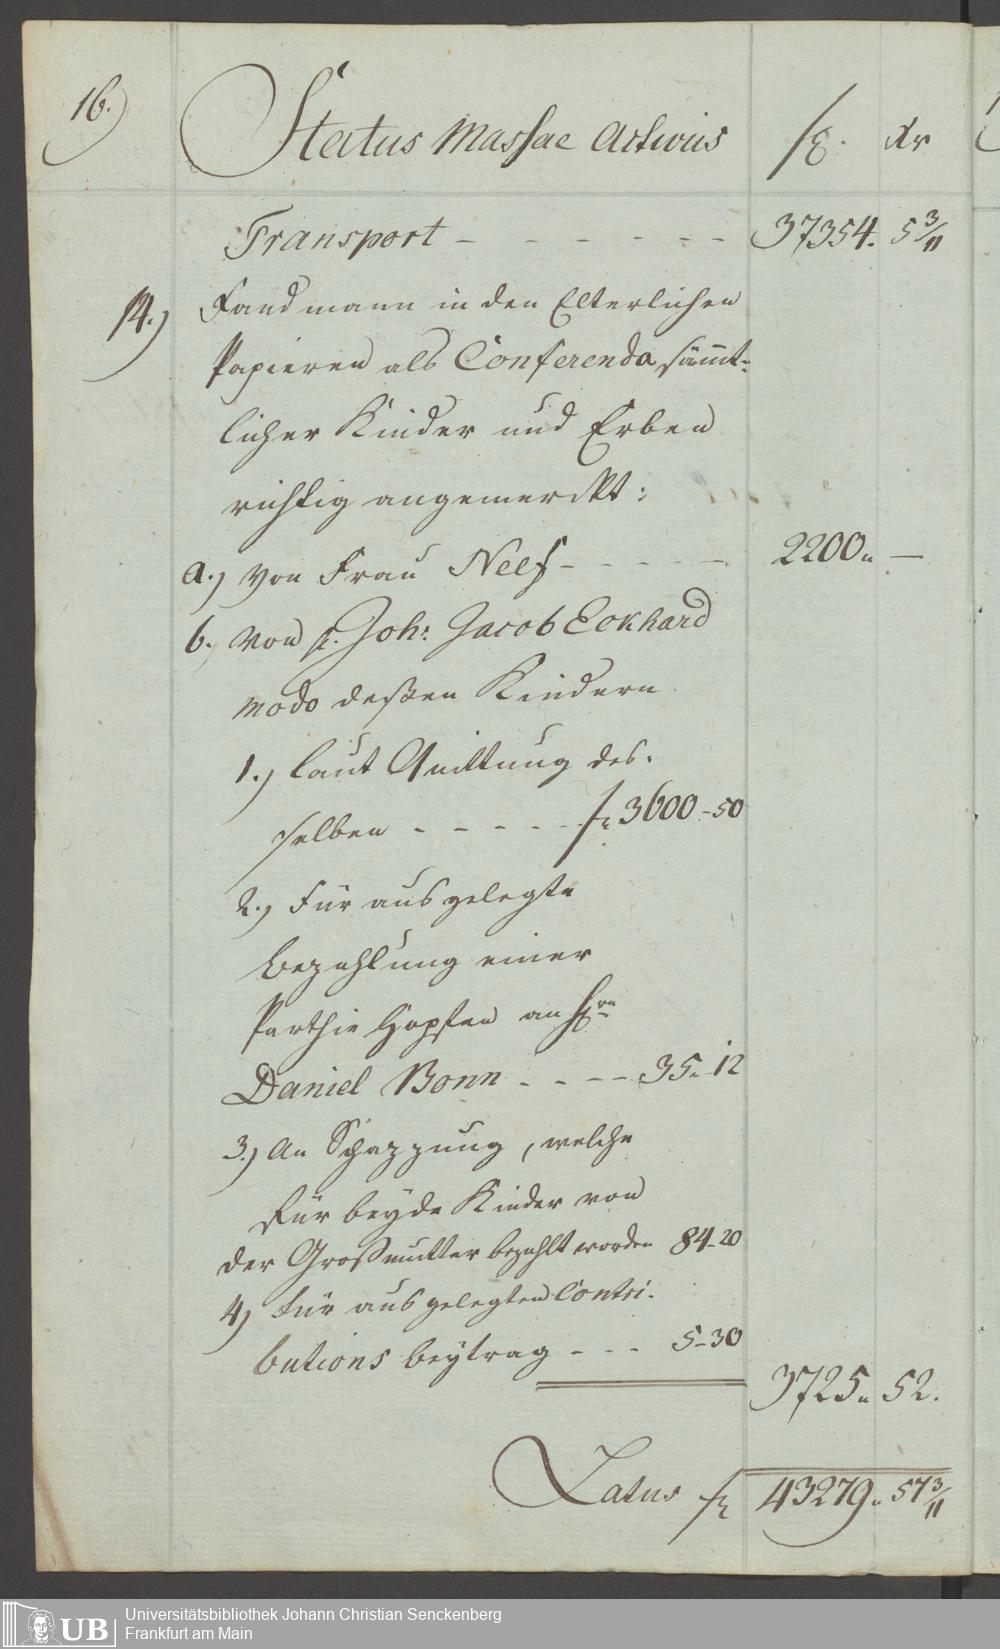 16.)
Status Massae Activus fl. Xr
Transport - - - - - - - 37354. 5 3/11
14.) Fand mann in den Elterlichen
Papieren als Conferenda sämt-
licher Kinder und Erben
richtig angemerckt:
a.) Von Frau Neef - - - - - 2200" —
b.) Von H. Joh: Jacob Eckhard
modo deßen Kindern
1.) laut Quittung des-
selben - - - - - fl 3600-50
2.) Für ausgelegte
Bezahlung einer
Parthie Hopfen an Hrn
Daniel Bonn - - - - 35-12
3.) An Schazzung, welche
für beyde Kinder von
der Großmutter bezahlt worden 84-20
4) Für ausgelegten Contri-
butions beytrag - - - 5-30
3725" 52.
Latus fl 43279" 57 3/11
UB Universitätsbibliothek Johann Christian Senckenberg
Frankfurt am Main